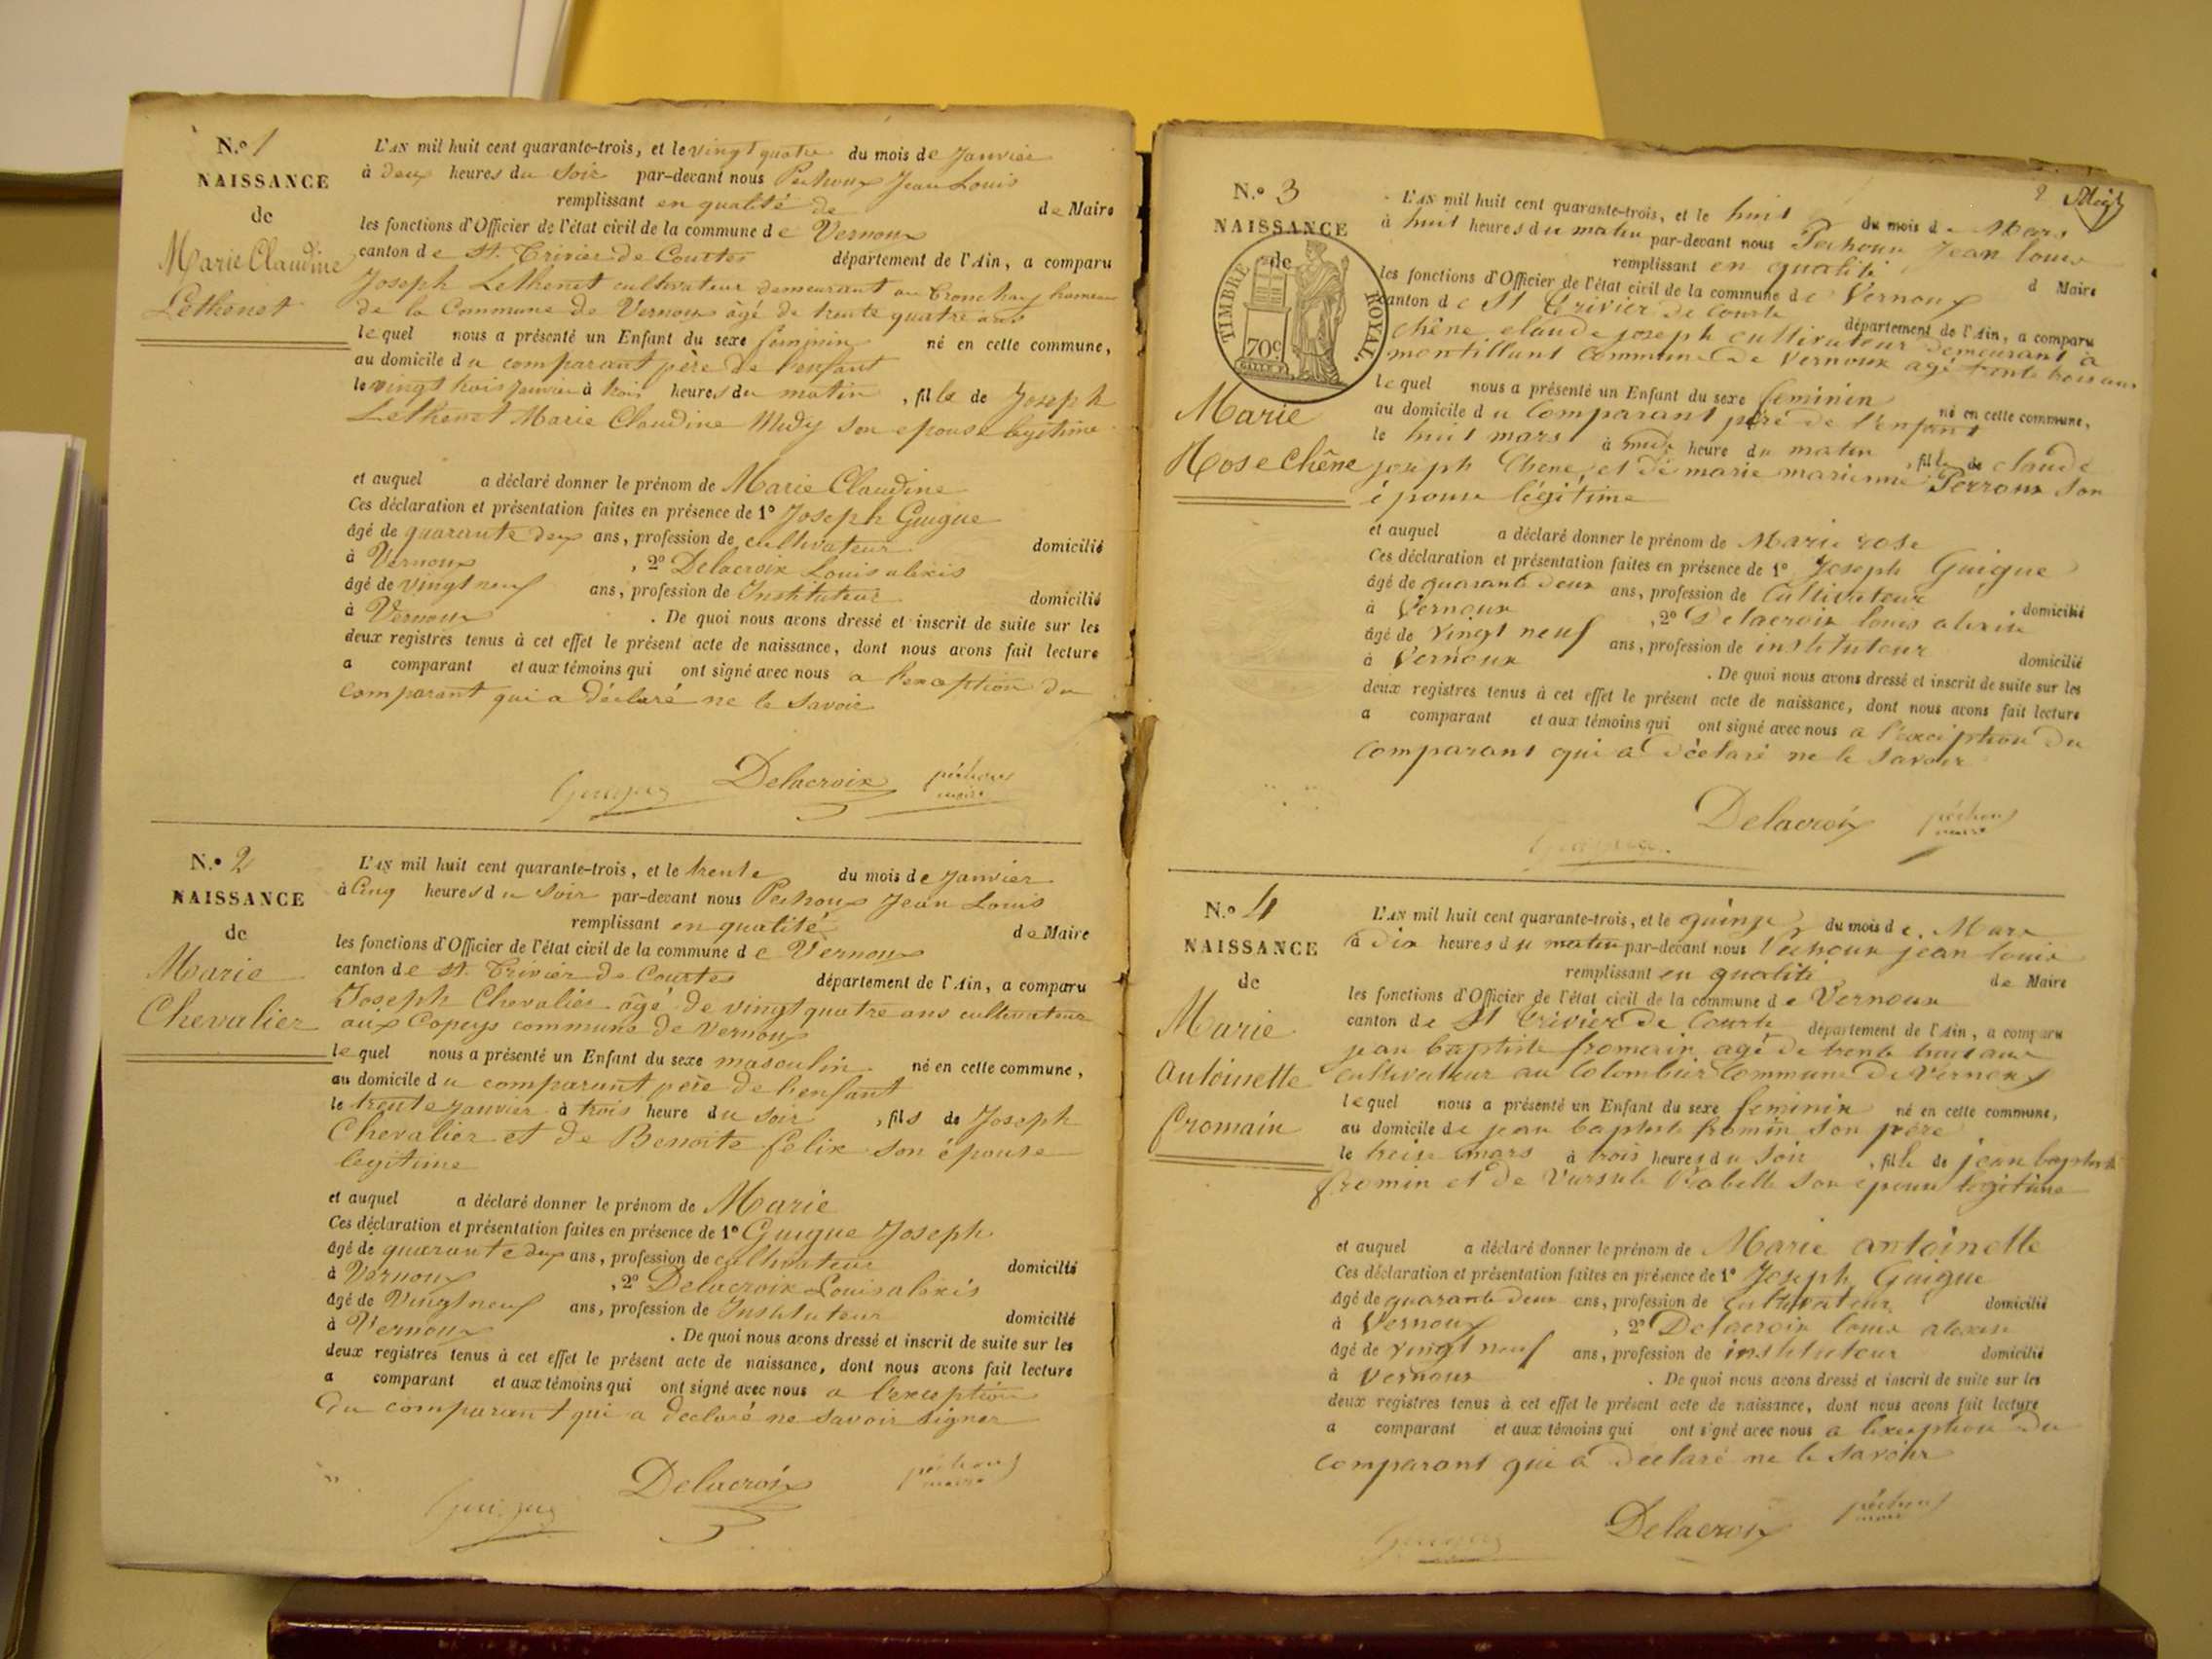 N.º 1
NAISSANCE
de
Marie Claudine
Lethenet
L'AN mil huit cent quarante-trois, et le vingt quatre du mois de Janvier
à deux heures du Soir par-devant nous Pechoux Jean Louis
remplissant en qualité de de Maire
les fonctions d'Officier de l'état civil de la commune de Vernoux
canton de St. Trivier de Courtes département de l'Ain, a comparu
Joseph Lethenet cultivateur demeurant au Tronchay hameau
de la Commune de Vernoux âgé de trente quatre ans
lequel nous a présenté un Enfant du sexe feminin né en cette commune,
au domicile du comparant père de l'enfant
le vingt trois Janvier à trois heures du matin , fille de Joseph
Lethenet Marie Claudine Midy son epouse legitime
et auquel a déclaré donner le prénom de Marie Claudine
Ces déclaration et présentation faites en présence de 1º Joseph Guigue
âgé de quarante deux ans, profession de cultivateur domicilié
à Vernoux , 2º Delacroix Louis alexis
âgé de vingt neuf ans, profession de Instituteur domicilié
à Vernoux . De quoi nous avons dressé et inscrit de suite sur les
deux registres tenus à cet effet le présent acte de naissance, dont nous avons fait lecture
a comparant et aux témoins qui ont signé avec nous a l'exception du
comparant qui a déclaré ne le savoir
Guigue Delacroix péchoux
maire
N.º 2
NAISSANCE
de
Marie
Chevalier
L'AN mil huit cent quarante-trois, et le trente du mois de janvier
à Cinq heures du Soir par-devant nous Pechoux Jean Louis
remplissant en qualité de Maire
les fonctions d'Officier de l'état civil de la commune de Vernoux
canton de St. Trivier de Courtes département de l'Ain, a comparu
Joseph Chevalier âgé de vingt quatre ans cultivateur
aux Copeys commune de Vernoux
lequel nous a présenté un Enfant du sexe masculin né en cette commune,
au domicile du comparant père de l'enfant
le trente janvier à trois heure du soir , fils de Joseph
Chevalier et de Benoite felix son épouse
legitime
et auquel a déclaré donner le prénom de Marie
Ces déclaration et présentation faites en présence de 1º Guigue Joseph
âgé de quarante deux ans, profession de cultivateur domicilié
à Vernoux , 2º Delacroix Louis alexis
âgé de Vingt neuf ans, profession de Instituteur domicilié
à Vernoux . De quoi nous avons dressé et inscrit de suite sur les
deux registres tenus à cet effet le présent acte de naissance, dont nous avons fait lecture
a comparant et aux témoins qui ont signé avec nous a l'exception
du comparant qui a declaré ne savoir signer
Guigue Delacroix péchoux
maire
2
N.º 3
NAISSANCE
de
TIMBRE ROYAL
70c
Marie
Rose Chêne
L'AN mil huit cent quarante-trois, et le huit du mois de Mars
à huit heures du matin par-devant nous Pechoux Jean louis
remplissant en qualité d Maire
les fonctions d'Officier de l'état civil de la commune de Vernoux
canton de St Trivier de Courte département de l'Ain, a comparu
Chêne claude joseph cultivateur demeurant à
montillant Commune de Vernoux agé trente trois ans
lequel nous a présenté un Enfant du sexe feminin né en cette commune,
au domicile du Comparant père de l'enfant
le huit mars à heure du matin , fille de claude
joseph Chene et de marie marienne Perroux son
épouse légitime
et auquel a déclaré donner le prénom de Marie rose
Ces déclaration et présentation faites en présence de 1º Joseph Guigue
âgé de quarante deux ans, profession de Cultivateur , domicilié
à Vernoux , 2º Delacroix louis alexis
âgé de vingt neuf ans, profession de instituteur domicilié
à Vernoux . De quoi nous avons dressé et inscrit de suite sur les
deux registres tenus à cet effet le présent acte de naissance, dont nous avons fait lecture
a comparant et aux témoins qui ont signé avec nous a l'exception du
Comparant qui a déclaré ne le savoir
Guigue Delacroix péchoux
maire
N.º 4
NAISSANCE
de
Marie
antoinette
fromain
L'AN mil huit cent quarante-trois, et le quinze du mois de Mars
à dix heures du matin par-devant nous Pechoux jean louis
remplissant en qualité de Maire
les fonctions d'Officier de l'état civil de la commune de Vernoux
canton de St Trivier de Courte département de l'Ain, a comparu
jean baptiste fromain agé de trente huit ans
cultivateur au Colombier Commune de Vernoux
lequel nous a présenté un Enfant du sexe feminin né en cette commune,
au domicile de jean baptiste fromin son père
le treise mars à trois heures du soir , fille de jean baptiste
fromin et de Vursule Rabelle son épouse legitime
et auquel a déclaré donner le prénom de Marie antoinette
Ces déclaration et présentation faites en présence de 1º Joseph Guigue
âgé de quarante deux ans, profession de Cultivateur domicilié
à Vernoux , 2º Delacroix louis alexis
âgé de vingt neuf ans, profession de instituteur domicilié
à Vernoux . De quoi nous avons dressé et inscrit de suite sur les
deux registres tenus à cet effet le présent acte de naissance, dont nous avons fait lecture
a comparant et aux témoins qui ont signé avec nous a l'exception du
comparant qui a déclaré ne le savoir
Guigue Delacroix péchoux
maire